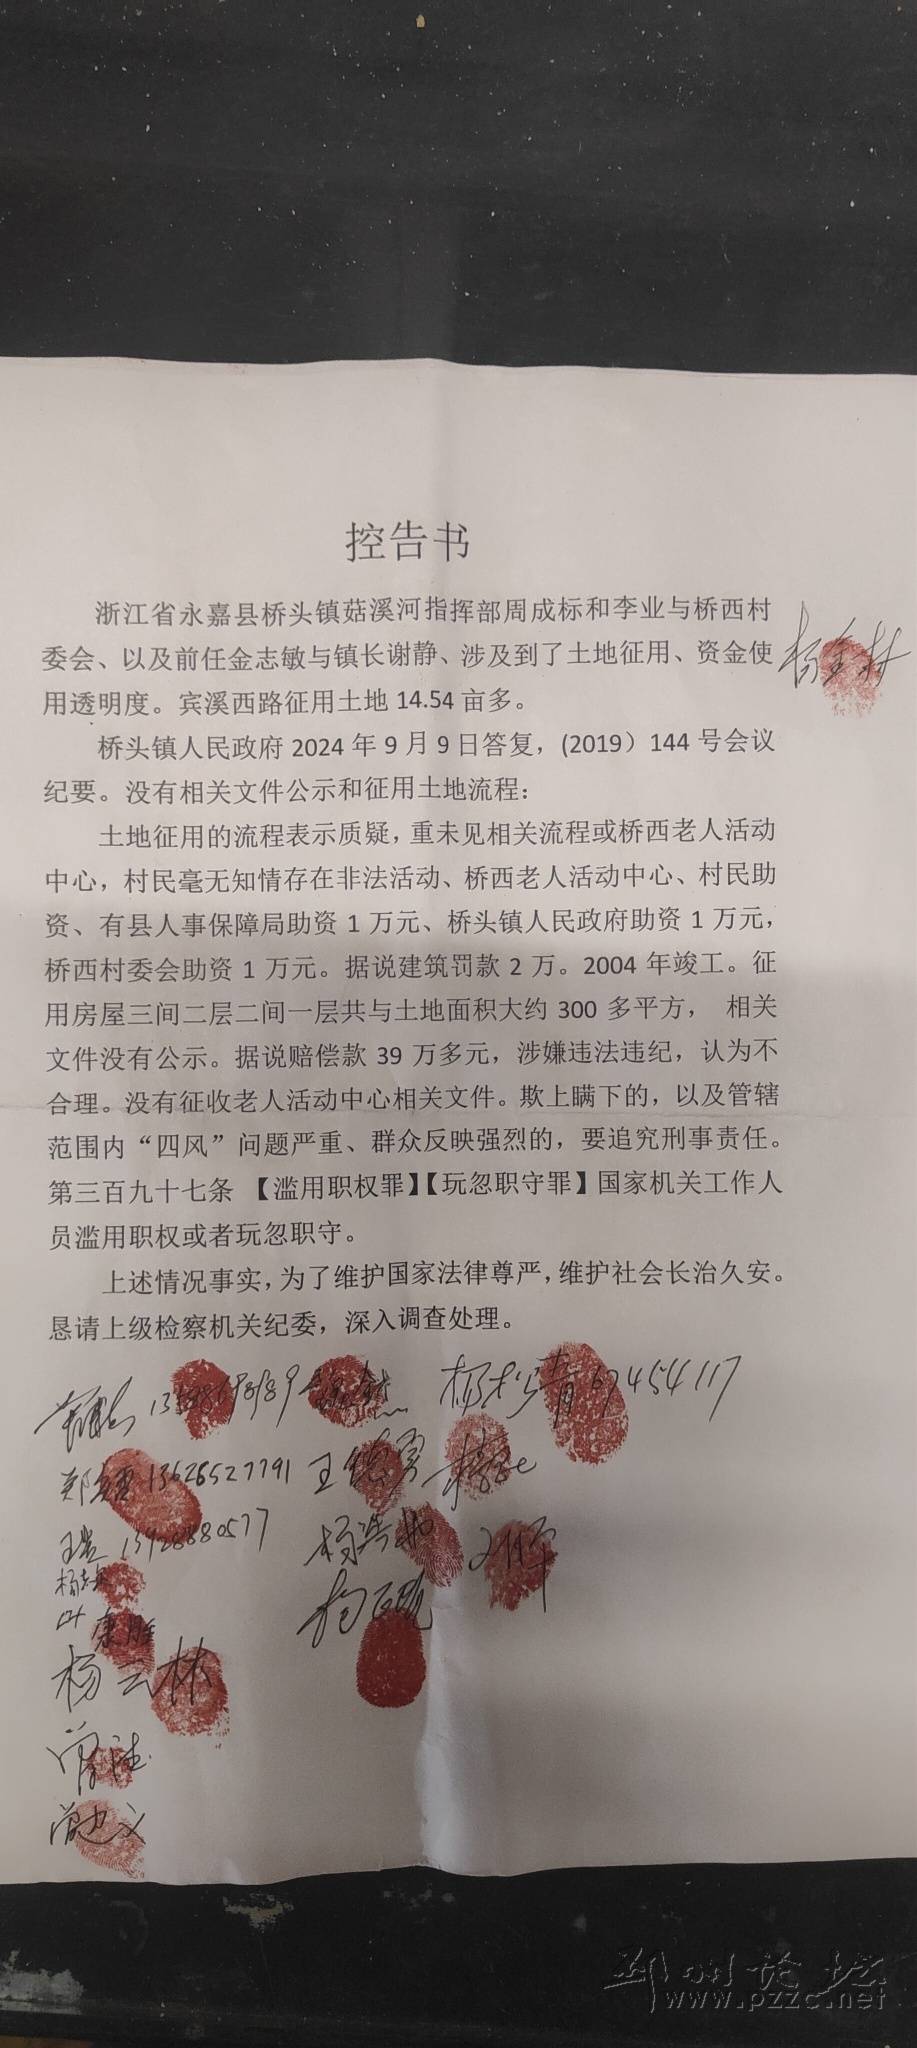 控告书
浙江省永嘉县桥头镇菇溪河指挥部周成标和李业与桥西村
委会、以及前任金志敏与镇长谢静、涉及到了土地征用、资金使
用透明度。宾溪西路征用土地 14.54 亩多。
桥头镇人民政府 2024 年 9 月 9 日答复，(2019）144 号会议
纪要。没有相关文件公示和征用土地流程：
土地征用的流程表示质疑，重未见相关流程或桥西老人活动
中心，村民毫无知情存在非法活动、桥西老人活动中心、村民助
资、有县人事保障局助资 1 万元、桥头镇人民政府助资 1 万元，
桥西村委会助资 1 万元。据说建筑罚款 2 万。2004 年竣工。征
用房屋三间二层二间一层共与土地面积大约 300 多平方， 相关
文件没有公示。据说赔偿款 39 万多元，涉嫌违法违纪，认为不
合理。没有征收老人活动中心相关文件。欺上瞒下的，以及管辖
范围内“四风”问题严重、群众反映强烈的，要追究刑事责任。
第三百九十七条 【滥用职权罪】【玩忽职守罪】国家机关工作人
员滥用职权或者玩忽职守。
上述情况事实，为了维护国家法律尊严，维护社会长治久安。
恳请上级检察机关纪委，深入调查处理。
杨云林
郅州论坛
www.pzzc.net